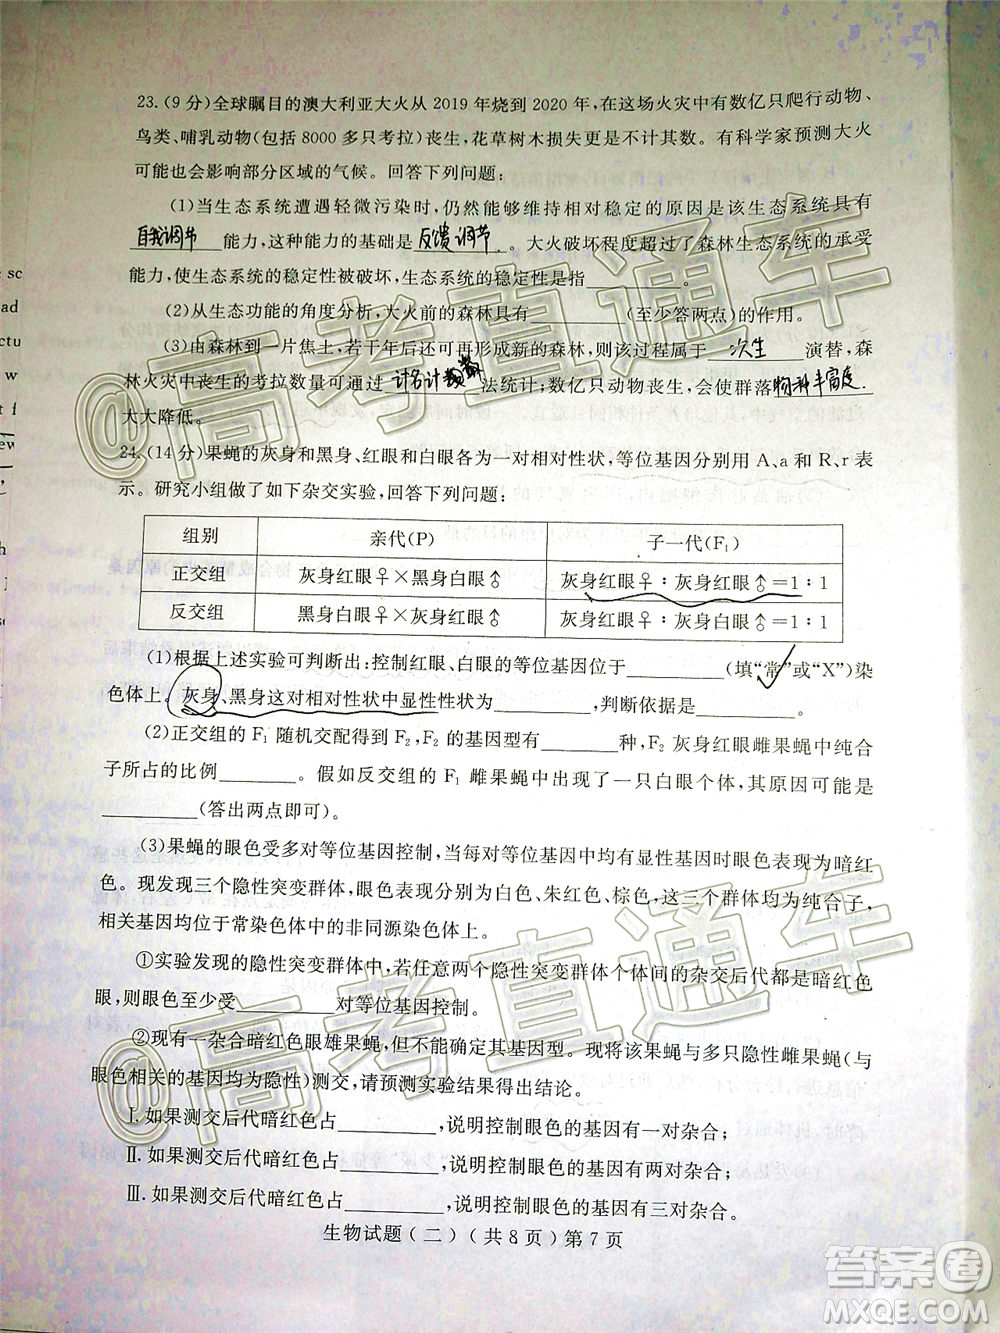 23.(9 分)全球瞩目的澳大利亚大火从 2019 年烧到 2020 年,在这场火灾中有数亿只爬行动物、
鸟类、哺乳动物(包括 8000 多只考拉)丧生,花草树木损失更是不计其数。有科学家预测大火
可能也会影响部分区域的气候。回答下列问题:
(1)当生态系统遭遇轻微污染时,仍然能够维持相对稳定的原因是该生态系统具有
自我调节能力,这种能力的基础是反馈调节。大火破坏程度超过了森林生态系统的承受
能力,使生态系统的稳定性被破坏,生态系统的稳定性是指________。
(2)从生态功能的角度分析,大火前的森林具有________(至少答两点)的作用。
(3)由森林到一片焦土,若干年后还可再形成新的森林,则该过程属于 次生 演替,森
林火灾中丧生的考拉数量可通过 计名计 数 法统计;数亿只动物丧生,会使群落物种丰富度
大大降低。
24.(14 分)果蝇的灰身和黑身、红眼和白眼各为一对相对性状,等位基因分别用 A、a 和 R、r 表
示。研究小组做了如下杂交实验,回答下列问题:
组别 亲代(P) 子一代(F₁)
正交组 灰身红眼♀×黑身白眼♂ 灰身红眼♀:灰身红眼♂=1:1
反交组 黑身白眼♀×灰身红眼♂ 灰身红眼♀:灰身白眼♂=1:1
(1)根据上述实验可判断出:控制红眼、白眼的等位基因位于________(填“常”或“X”)染
色体上。灰身、黑身这对相对性状中显性性状为________,判断依据是________。
(2)正交组的 F₁ 随机交配得到 F₂,F₂ 的基因型有________种,F₂ 灰身红眼雌果蝇中纯合
子所占的比例________。假如反交组的 F₁ 雌果蝇中出现了一只白眼个体,其原因可能是
________(答出两点即可)。
(3)果蝇的眼色受多对等位基因控制,当每对等位基因都有显性基因时,眼色表现为暗红
色。现发现三个隐性突变群体,眼色表现分别为白色、朱红色、棕色,这三个群体均为纯合子,
相关基因均位于常染色体中的非同源染色体上。
①实验发现的隐性突变群体中,若任意两个隐性突变群体个体间的杂交后代都是暗红色
眼,则眼色至少受________对等位基因控制。
②现有一杂合暗红色眼雄果蝇,但不能确定其基因型。现将该果蝇与多只隐性雌果蝇(与
眼色相关的基因均为隐性)测交,请预测实验结果得出结论。
Ⅰ.如果测交后代暗红色占________,说明控制眼色的基因有一对杂合;
Ⅱ.如果测交后代暗红色占________,说明控制眼色的基因有两对杂合;
Ⅲ.如果测交后代暗红色占________,说明控制眼色的基因有三对杂合。
生物试题(二)(共 8 页)第 7 页
@高考直通车
@高考直通车
答案圈
MXQE.COM